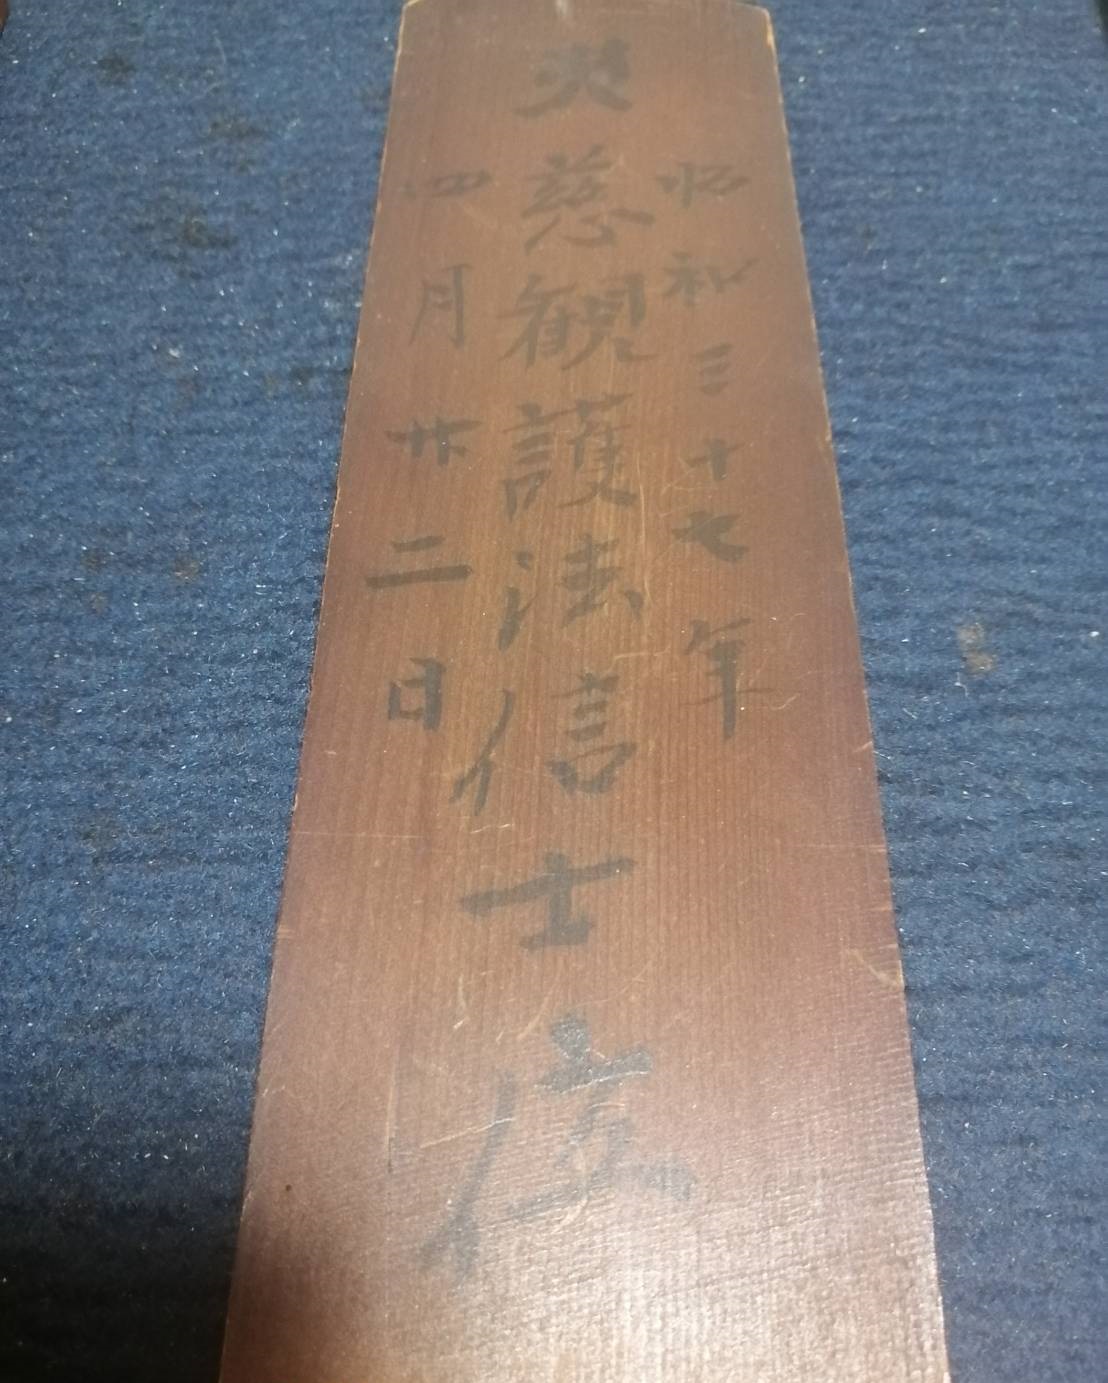 昭和三十七年
慈観護法信士位
四月廿二日